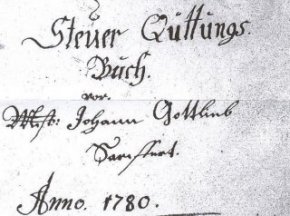 Steuer Quttungs
Buch.
vor
Mstr: Johann Gottlieb
Anno. 1780.